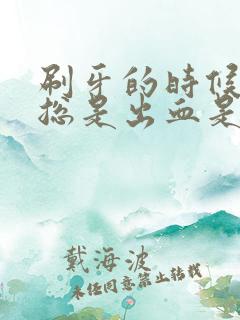 刷牙的时候
总是出血是
戴海波
未经同意禁止转载